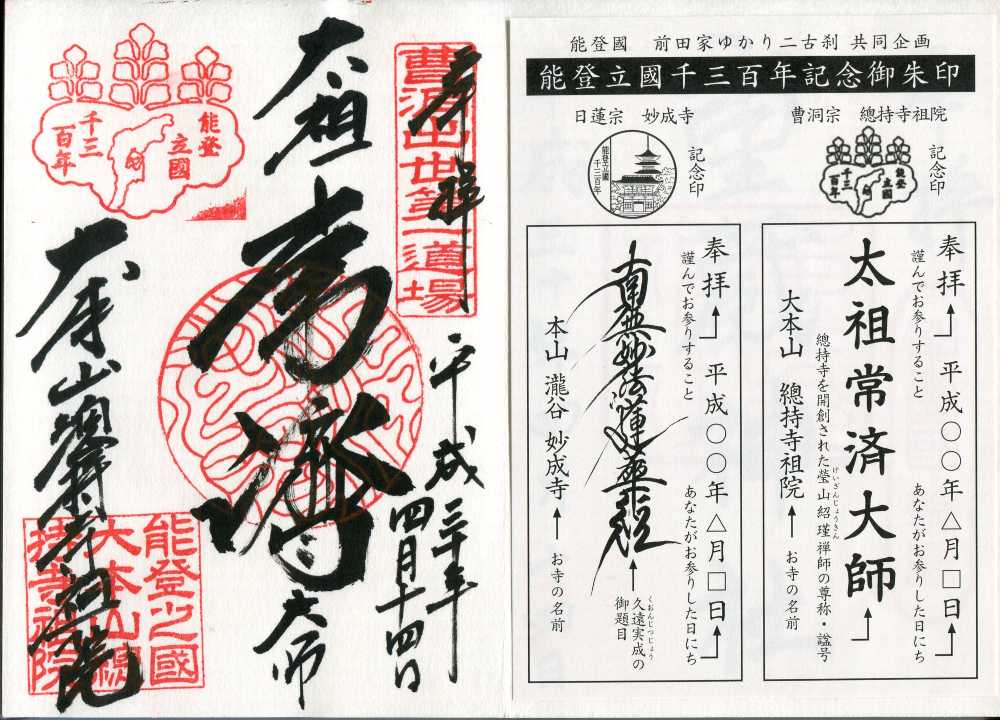 奉拝
平成三十年
四月十四日
曹洞出世第一道場
太祖
常済
大師
能登
立國
千三
百年
大本山總持寺祖院
能登之國
大本山總
持寺祖院
能登國 前田家ゆかり二古刹 共同企画
能登立國千三百年記念御朱印
曹洞宗 總持寺祖院
記念印
能登
立國
千三
百年
日蓮宗 妙成寺
記念印
能登立國
千三百年
奉拝 ↑ 平成〇〇年△月□日
謹んでお参りすること
あなたがお参りした日にち
太祖常済大師
總持寺を開創された瑩山紹瑾禅師の尊称・諡号
けいざんじょうきん
大本山 總持寺祖院 ↑ お寺の名前
奉拝 ↑ 平成〇〇年△月□日
謹んでお参りすること
あなたがお参りした日にち
南無妙法蓮華経
久遠実成の
くおんじつじょう
御題目
本山 瀧谷 妙成寺 ↑ お寺の名前